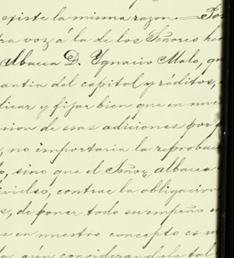 existe la misma razon. — Po
ra voz a la de los Señores he
albacea D. Ygnacio Malo, qu
antia del capital y réditos,
licar y fijar bien que en nue
cion de esas adiciones por
, no importaria la reproba
o, sino que el Señor albacea
civiles, contrae la obligacion
s, de poner todo su empeño
es en nuestro concepto es
aún considerandola tal